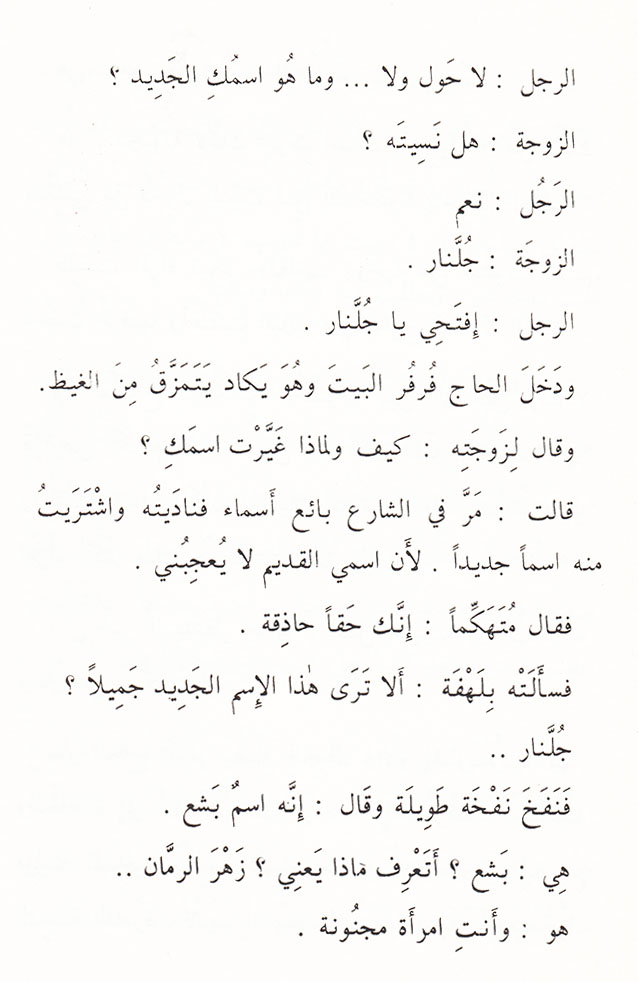 الرجل : لا حَول ولا ... وما هُو اسمُكِ الجَدِيد ؟
الزوجة : هل نَسِيتَه ؟
الرَجُل : نعم
الزوجَة : جُلَّنار .
الرجل : إِفتَحِي يا جُلَّنار .
ودَخَلَ الحاج فُرفُر البَيتَ وهُوَ يَكاد يَتَمَزَّقُ مِنَ الغيظ.
وقال لِزَوجَتِه : كيف ولماذا غَيَّرْت اسمَكِ ؟
قالت : مَرَّ في الشارع بائع أَسماء فنادَيتُه واشْتَرَيتُ
منه اسماً جديداً . لأَن اسمي القديم لا يُعجِبُني .
فقال مُتَهَكِّماً : إِنَّك حَقاً حاذِقة .
فسأَلَتْه بِلَهْفَة : أَلا تَرَى هٰذا الإِسم الجَدِيد جَمِيلاً ؟
جُلَّنار ..
فَنَفَخَ نَفْخَة طَوِيلَة وقَال : إِنَّه اسمٌ بَشع .
هِي : بَشع ؟ أَتَعْرِف ماذا يَعنِي ؟ زَهْرَ الرمَّان ..
هو : وأَنتِ امرأَة مجنُونة .